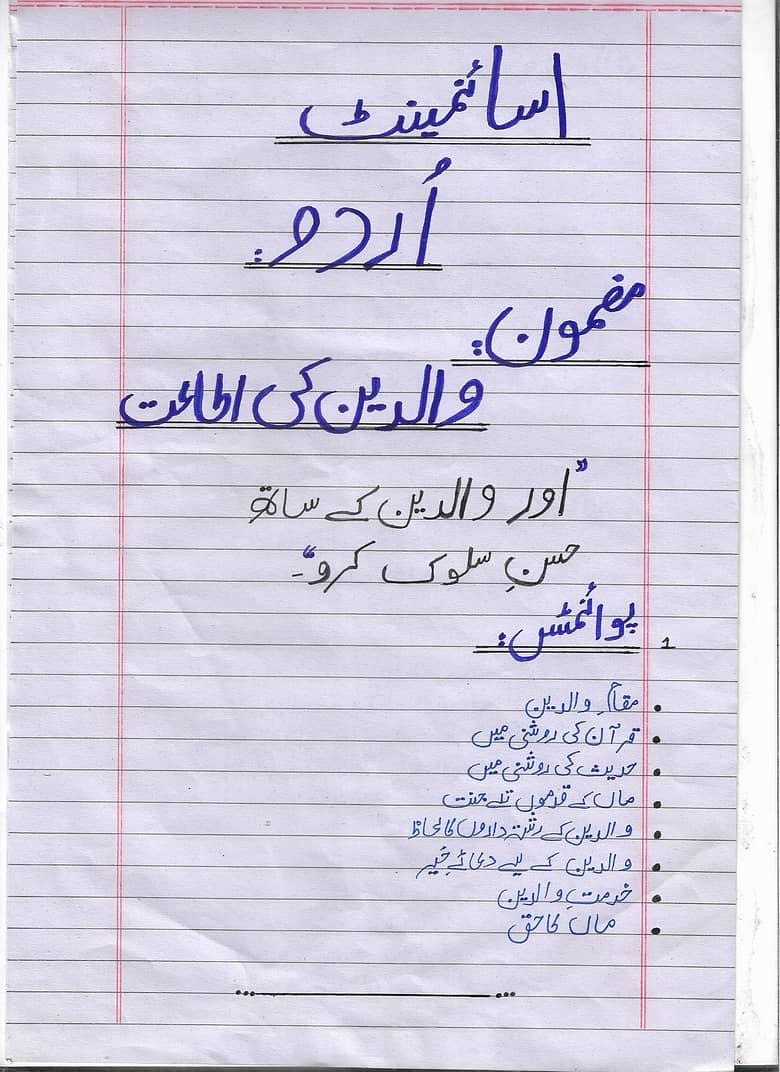 اسائنمینٹ
اُردو:
مضمون:
والدین کی اطاعت
"اور والدین کے ساتھ
حسنِ سلوک کرو"۔
1 پوائنٹس:
• مقامِ والدین
• قرآن کی روشنی میں
• حدیث کی روشنی میں
• ماں کے قدموں تلے جنت
• والدین کے رشتہ داروں کا لحاظ
• والدین کے لیے دعائے خیر
• خدمتِ والدین
• ماں کا حق